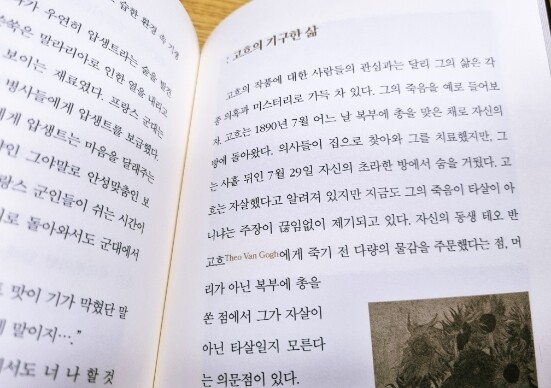 우연히 압생트라는 술을 발견
쑥은 말라리아로 인한 열을 내리고
보이는 재료였다. 프랑스 군대는
병사들에게 압생트를 보급했다.
에게 압생트는 마음을 달래주는
그야말로 안성맞춤인 보
랑스 군인들이 쉬는 시간이
로 돌아와서도 군대에서
맛이 기가 막혔단 말
말이지…."
에서도 너 나 할 것
고흐의 기구한 삶
고흐의 작품에 대한 사람들의 관심과는 달리 그의 삶은 각
종 의혹과 미스터리로 가득 차 있다. 그의 죽음을 예로 들어보
자. 고흐는 1890년 7월 어느 날 복부에 총을 맞은 채로 자신의
방에 돌아왔다. 의사들이 집으로 찾아와 그를 치료했지만, 그
는 사흘 뒤인 7월 29일 자신의 초라한 방에서 숨을 거뒀다. 고
흐는 자살했다고 알려져 있지만 지금도 그의 죽음이 타살이 아
니냐는 주장이 끊임없이 제기되고 있다. 자신의 동생 테오 반
고흐Theo Van Gogh에게 죽기 전 다량의 물감을 주문했다는 점, 머
리가 아닌 복부에 총을
쏜 점에서 그가 자살이
아닌 타살일지 모른다
는 의문점이 있다.